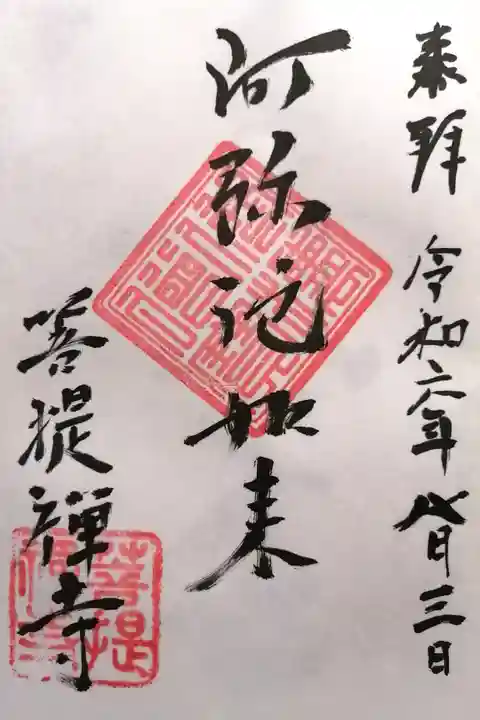 奉拝 令和六年 八月三日
阿弥陀如来
菩提禅寺
菩提